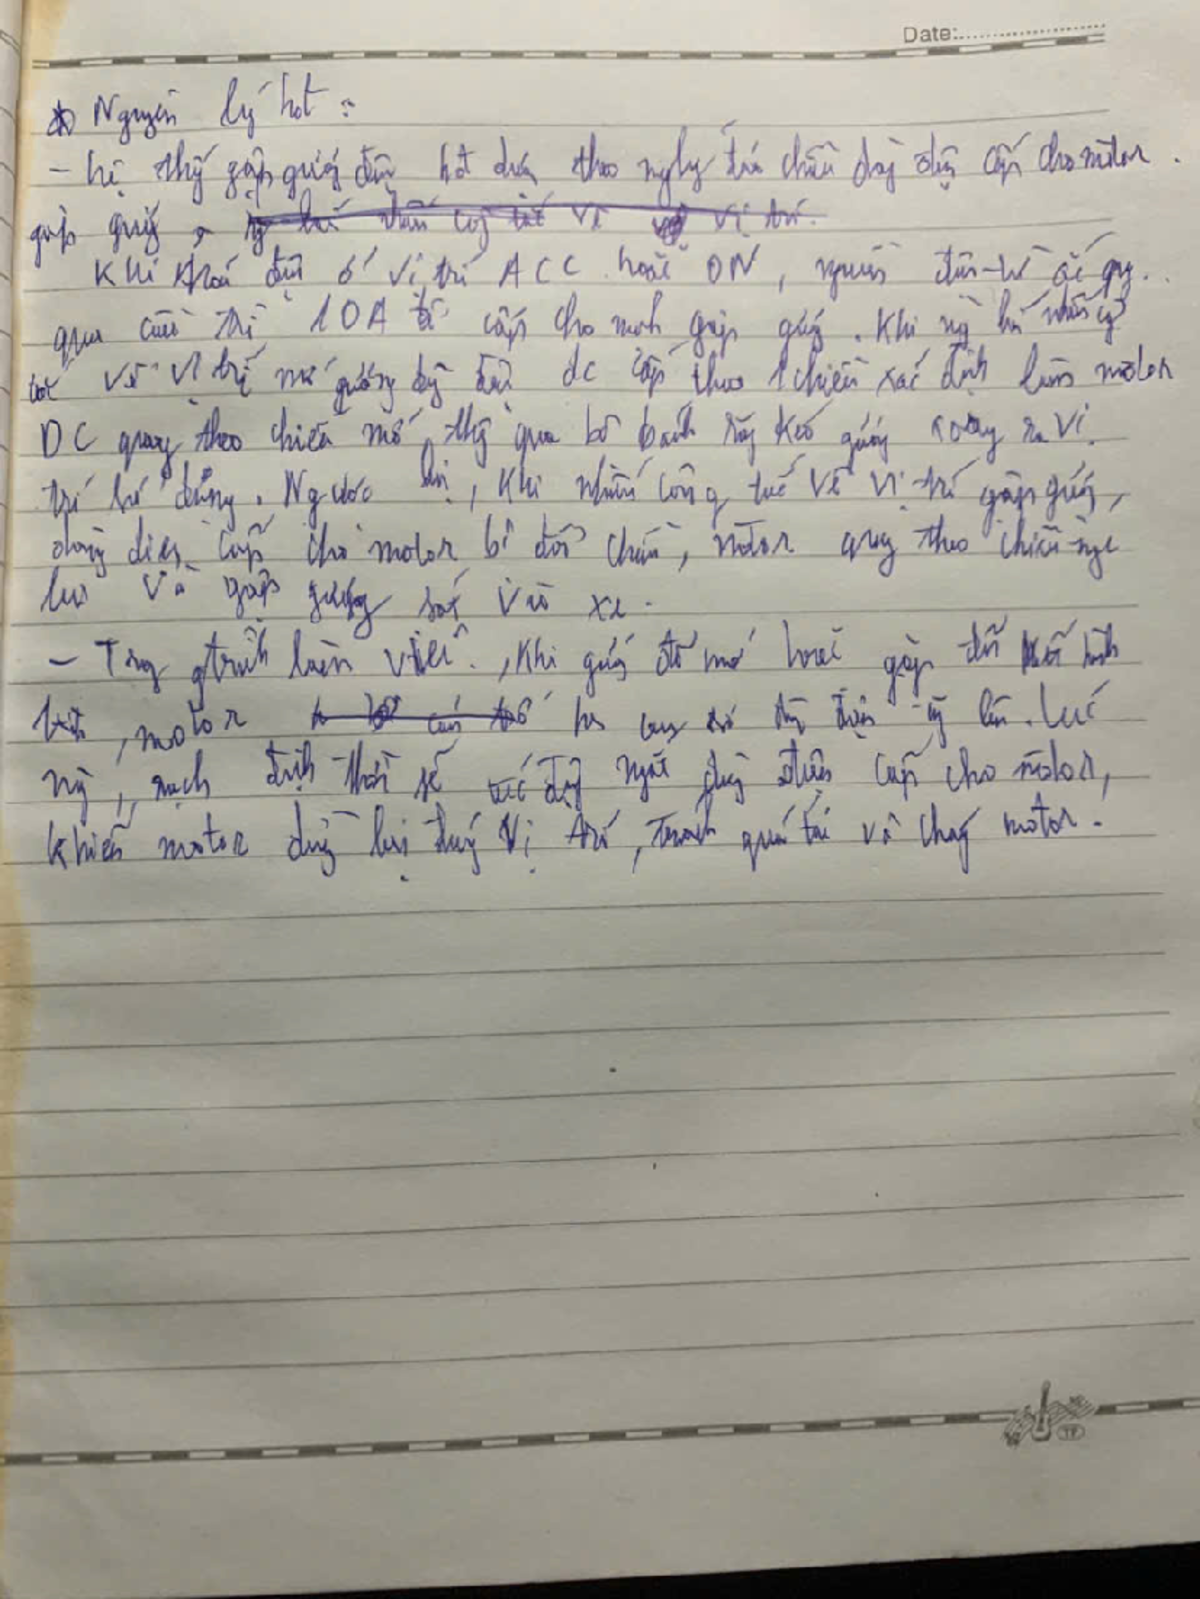 Date:
* Nguyên lý hot :
- hệ thống gập gương điện hot dựa theo nguyên đảo chiều dòng điện cấp cho môtor.
gập gương
Khi khoá điện ở vị trí ACC hoặc ON, nguồn điện từ ắc quy
qua cầu chì 10A cấp cho mạch gập gương. Khi người lái nhấn công
tắc về vị trí mở gương dòng điện dc cấp theo 1 chiều xác định làm motor
DC quay theo chiều mở, thông qua bộ bánh răng kéo gương xoay ra vị
trí sử dụng. Ngược lại, khi nhấn công tắc về vị trí gập gương,
dòng điện cấp cho motor bị đổi chiều, môtor quay theo chiều ngược
lại và gập gương sát vào xe.
- Trong quá trình làm việc, khi gương đã mở hoặc gập đến hành
trình, motor dòng điện tăng lên. Lúc
này, mạch định thời sẽ tác động ngắt dòng điện cấp cho môtor,
khiến motor dừng lại đúng vị trí, tránh quá tải và cháy motor.